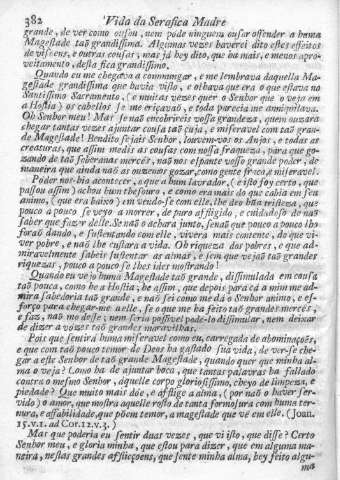 382 Vida da Serafica Madre
grande, de ver como ousou, nem póde ninguem ousar offender a huma
Magestade taõ grandissima. Algumas vezes haverei dito estes effeitos
de visoens, e outras cousas; mas já hey dito, que ha mais, e menos apro-
veitamento, desta fica grandissimo.
Quando eu me chegava a commungar, e me lembrava daquella Ma-
gestade grandissima que havia visto, e olhava que era o que estava no
Santissimo Sacramento, (e muitas vezes quer o Senhor que o veja em
a Hostia) os cabellos se me eriçavaõ, e toda parecia me aniquilava.
Oh Senhor meu! Mas se naõ encobrireis vossa grandeza, quem ouzara
chegar tantas vezes a juntar cousa taõ çuja, e miseravel com taõ gran-
de Magestade! Bendito sejais Senhor, louvem-vos os Anjos, e todas as
creaturas, que assim medis as cousas com nossa fraqueza, para que go-
zando de taõ soberanas mercês, naõ nos espante vosso grande poder, de
maneira que ainda naõ as ouzemos gozar, como gente fraca, e miseravel.
Poder nos-hia acontecer, o que a hum lavrador, (e isto foy certo, que
passou assim) achou hum thesouro, e como era mais do que cabia em seu
animo, (que era baixo) em vendo-se com elle, lhe deu huã tristeza, que
pouco a pouco se veyo a morrer, de puro affligido, e cuidadoso de naõ
saber que fazer delle. Se naõ o achara junto, senaõ que pouco a pouco lho
foraõ dando, e sustentando com elle, vivera mais contente, do que vi-
ver pobre, e naõ lhe custara a vida. Oh riqueza dos pobres, e que ad-
miravelmente sabeis sustentar as almas, e sem que vejaõ taõ grandes
riquezas, pouco a pouco se lhes ides mostrando!
Quando eu vejo huma Magestade taõ grande, dissimulada em cousa
taõ pouca, como he a Hostia; he assim, que depois para cá a mim me ad-
mira sabedoria taõ grande, e naõ sei como me dá o Senhor animo, e es-
forço para chegar-me a elle, se o que me ha feito taõ grandes mercês,
e faz, naõ mo desse; nem seria possivel podê-lo dissimular, nem deixar
de dizer a vozes taõ grandes maravilhas.
Pois que sentirá huma miseravel como eu, carregada de abominaçoẽs,
e que com taõ pouco temor de Deos ha gastado sua vida, de ver-se che-
gar a este Senhor de taõ grande Magestade, quando quer que minha al-
ma o veja? Como ha de ajuntar boca, que tantas palavras ha fallado
contra o mesmo Senhor, áquelle corpo gloriosissimo, cheyo de limpeza, e
piedade? Que muito mais dóe, e afflige a alma, (por naõ o haver ser-
vido) o amor, que mostra aquelle rosto de tanta formosura com huma ter-
nura, e affabilidade, que põem temor, a magestade que vê em elle. (Joan.
15.v.1. ad Cor.12.v.3.)
Mas que poderia eu sentir duas vezes, que vi isto, que disse? Certo
Senhor meu, e gloria minha, que estou para dizer, que em alguma ma-
neira, nestas grandes afflicçoens, que sente minha alma, hey feito algu-
ma